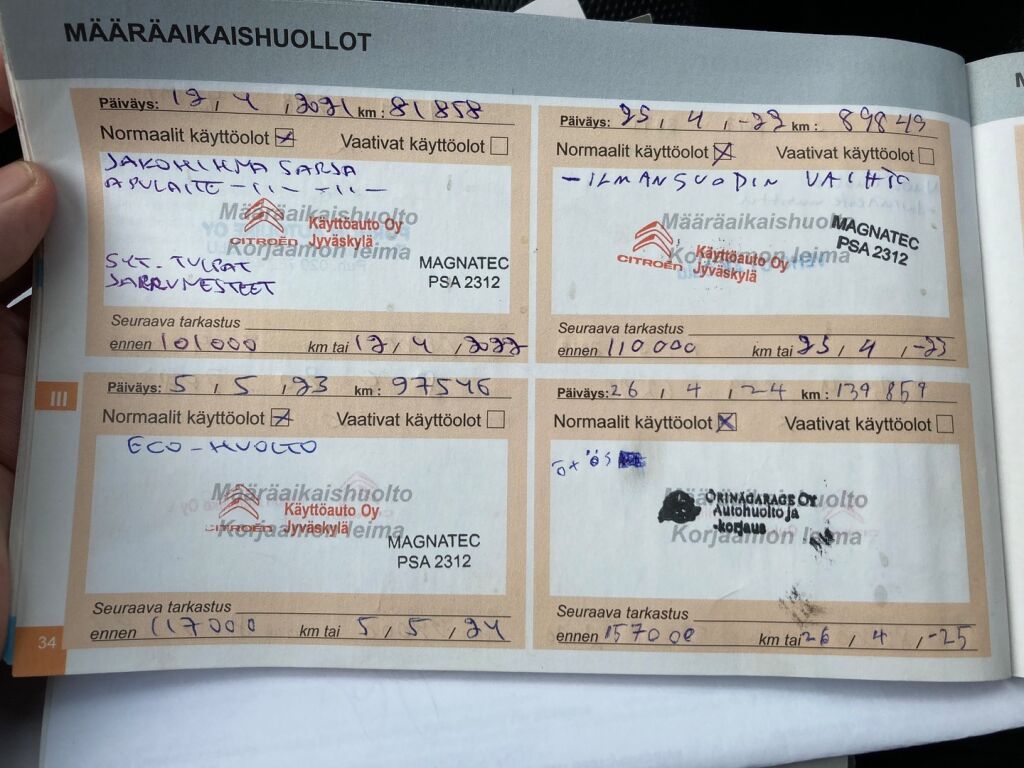 MÄÄRÄAIKAISHUOLLOT
Päiväys: 12, 4, 2021 km: 81858
Normaalit käyttöolot Vaativat käyttöolot
JAKOHIHNA SARJA
APULAITE -11- -11-
Määräaikaishuolto
Korjaamon leima
CITROËN
Käyttöauto Oy
Jyväskylä
SYT. TULPAT
JARRUNESTEET
MAGNATEC
PSA 2312
Seuraava tarkastus
ennen 101000 km tai 12, 4, 2022
Päiväys: 25, 4, -22 km: 89849
Normaalit käyttöolot Vaativat käyttöolot
- ILMANSUODIN VAIHTO
Määräaikaishuolto
Korjaamon leima
CITROËN
Käyttöauto Oy
Jyväskylä
MAGNATEC
PSA 2312
Seuraava tarkastus
ennen 110000 km tai 25, 4, -23
III
Päiväys: 5, 5, 23 km: 97546
Normaalit käyttöolot Vaativat käyttöolot
ECO-HUOLTO
Määräaikaishuolto
Korjaamon leima
CITROËN
Käyttöauto Oy
Jyväskylä
MAGNATEC
PSA 2312
Seuraava tarkastus
ennen 117000 km tai 5, 5, 24
Päiväys: 26, 4, -24 km: 139859
Normaalit käyttöolot Vaativat käyttöolot
Määräaikaishuolto
Korjaamon leima
ORINAGARAGE OY
Autohuolto ja
-korjaus
Seuraava tarkastus
ennen 157000 km tai 26, 4, -25
34